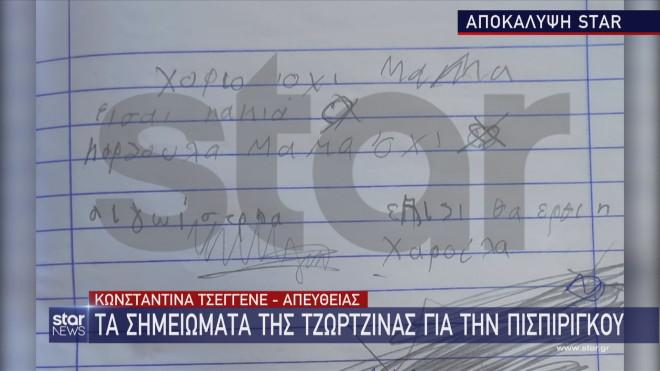 ΑΠΟΚΑΛΥΨΗ STAR
χοριο όχι μαμα
εισαι κακιά
μαμα όχι
star
θα ερθι η
Χαρούλα
ΚΩΝΣΤΑΝΤΙΝΑ ΤΣΕΓΓΕΝΕ - ΑΠΕΥΘΕΙΑΣ
star NEWS
ΤΑ ΣΗΜΕΙΩΜΑΤΑ ΤΗΣ ΤΖΩΡΤΖΙΝΑΣ ΓΙΑ ΤΗΝ ΠΙΣΠΙΡΙΓΚΟΥ
www.star.gr